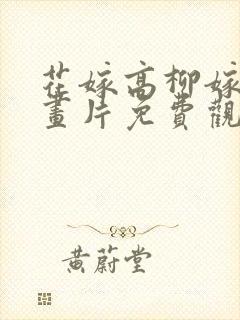 花嫁高柳嫁
畫片免費觀
黃蔚堂